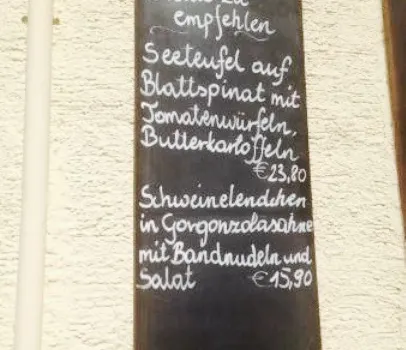 zu
empfehlen
Seeteufel auf
Blattspinat mit
Tomatenwürfeln,
Butterkartoffeln
€23,80
Schweinelendchen
in Gorgonzolasahne
mit Bandnudeln und
Salat €15,90